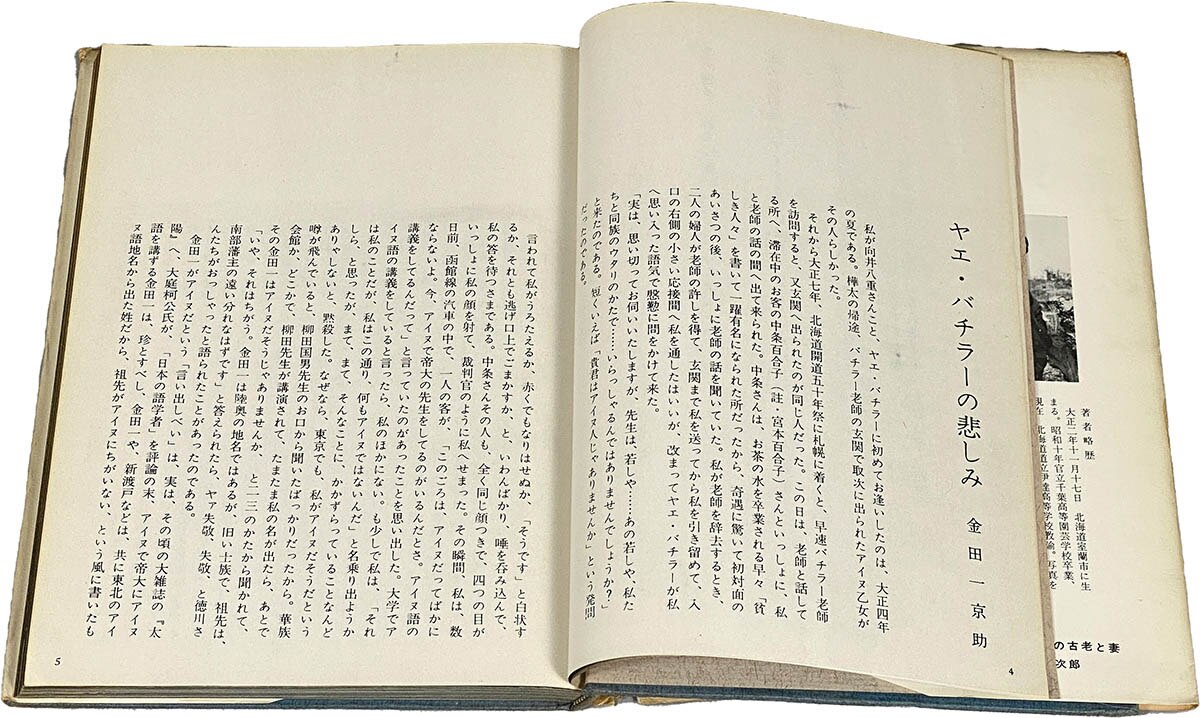 ヤエ・バチラーの悲しみ　金田一京助
私が向井八重さんこと、ヤエ・バチラーに初めてお逢いしたのは、大正四年
の夏である。樺太の帰途、バチラー老師の玄関で取次に出られたアイヌ乙女が
その人らしかった。
それから大正七年、北海道開道五十年祭に札幌に着くと、早速バチラー老師
を訪問すると、又玄関へ出られたのが同じ人だった。この日は、老師と話して
る所へ、滞在中のお客の中条百合子（註・宮本百合子）さんといっしょに、私
と老師の話の間へ出て来られた。中条さんは、お茶の水を卒業される早々「貧
しき人々」を書いて一躍有名になられた所だったから、奇遇に驚いて初対面の
あいさつの後、いっしょに老師の話を聞いていた。私が老師を辞去するとき、
二人の婦人が老師の許しを得て、玄関まで私を送ってから私を引き留めて、入
口の右側の小さい応接間へ私を通したはいいが、改まってヤエ・バチラーが私
へ思い入った語気で慇懃に問をかけて来た。
「実は、思い切ってお伺いいたしますが、先生は、若しや……あの若しや、私た
ちと同族のウタリのかたで……いらっしゃるんではありませんでしょうか？」
と来たのである。短くいえば「貴君はアイヌ人じゃありませんか」という発問
だったのである。
4
言われて私がうろたえるか、赤くでもなりはせぬか、「そうです」と白状す
るか、それとも逃げ口上でごまかすか、と、いわんばかり、唾を呑み込んで、
私の答を待つさまである。中条さんその人も、全く同じ顔つきで、四つの目が
いっしょに私の顔を射て、裁判官のように私へせまった。その瞬間、私は、数
日前、函館線の汽車の中で、一人の客が、「このごろは、アイヌだってばかに
ならないよ。今、アイヌで帝大の先生をしてるのがいるんだとさ。アイヌ語の
講義をしてるんだって」と言っていたのがあったことを思い出した。大学でア
イヌ語の講義をしていると言ったら、私のほかにない。もう少しで私は、「それ
は私のことだが、私はこの通り、何もアイヌではないんだ」と名乗り出ようか
しら、と思ったが、まて、まて、そんなことに、かかずらっていることなんど
ありやしないと、黙殺した。なぜなら、東京でも、私がアイヌだそうだという
噂が飛んでいると、柳田国男先生のお口から聞いたばっかりだったから。華族
会館か、どこかで、柳田先生が講演されて、たまたま私の名が出たら、あとで
「その金田一はアイヌだそうじゃありませんか、と二三のかたから聞かれて、
「いや、それはちがう。金田一は陸奥の地名ではあるが、旧い士族で、祖先は、
南部藩主の遠い分れなはずです」と答えられたら、ヤァ失敬、失敬、と徳川さ
んたちがおっしゃったと語られたことがあったのである。
金田一がアイヌだという「言い出しべい」は、実は、その頃の大雑誌の『太
陽』へ、大庭柯公氏が、「日本の語学者」を評論の末、アイヌで帝大にアイヌ
語を講する金田一は、珍とすべし、金田一や、新渡戸などは、共に東北のアイ
ヌ語地名から出た姓だから、祖先がアイヌにちがいない、という風に書いたも
5
著者略歴
大正二年十一月十七日　北海道室蘭市に生
まる。昭和十年官立千葉高等園芸学校卒業、
現在　北海道道立伊達高等学校教諭。写真を
の古老と妻
次郎